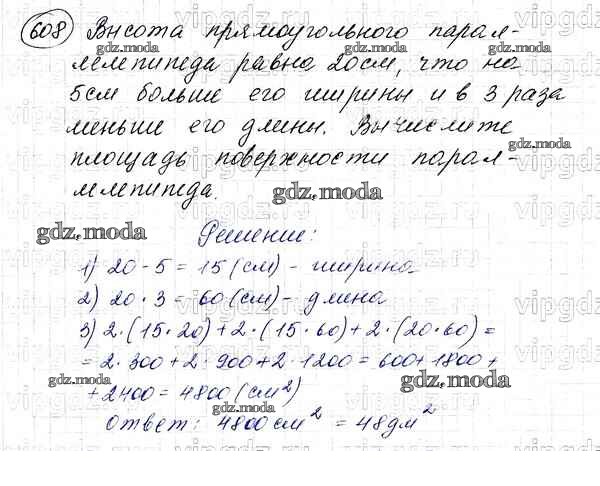 608 Высота прямоугольного парал-
лелепипеда равна 20см, что на
5см больше его ширины и в 3 раза
меньше его длины. Вычислите
площадь поверхности парал-
лелепипеда.
Решение:
1) 20 - 5 = 15 (см) - ширина
2) 20 · 3 = 60 (см) - длина
3) 2·(15·20)+2·(15·60)+2·(20·60)=
=2·300+2·900+2·1200=600+1800+
+2400=4800(см²)
Ответ: 4800см² = 48дм²
gdz.moda
vipgdz.ru